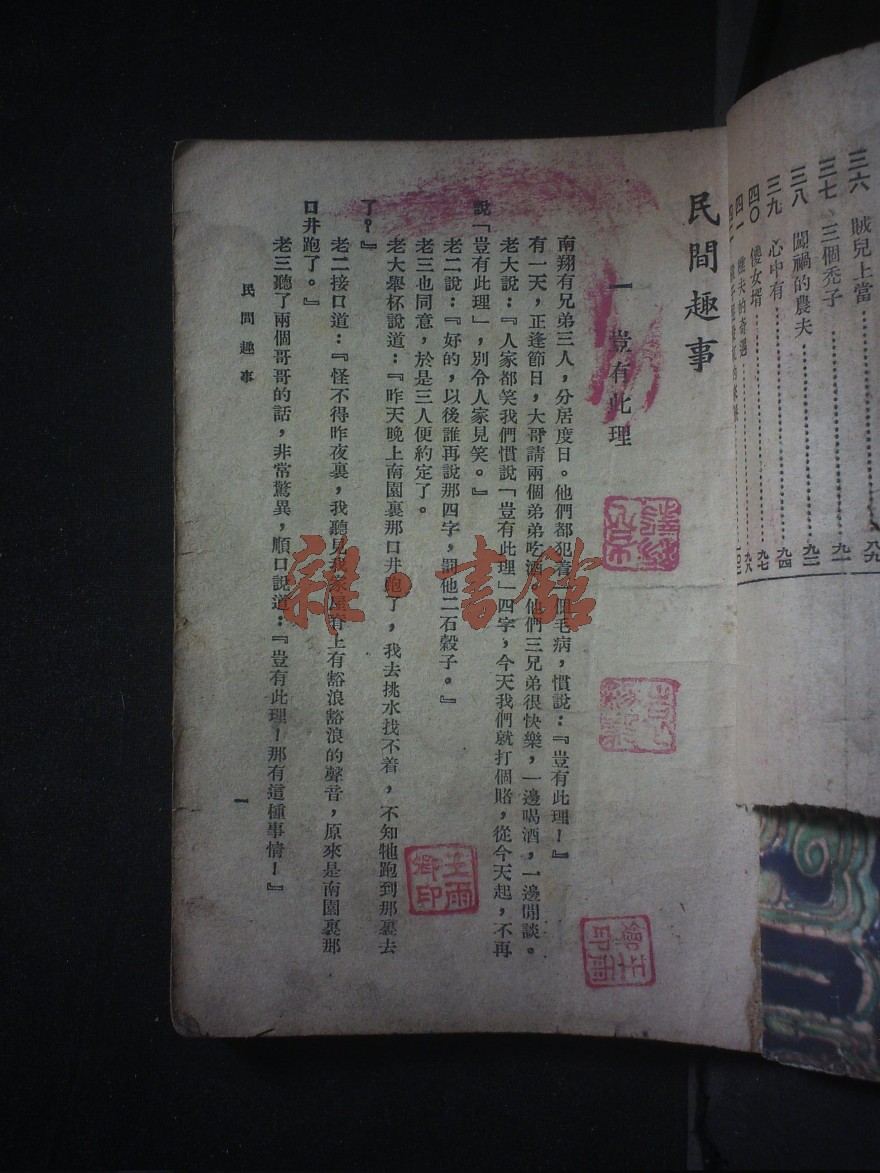 三六 賊兒上當 八九
三七 三個禿子 九一
三八 闖禍的農夫 九二
三九 心中有 九四
四〇 傻女壻 九七
四一 樵夫的奇遇 九八
民間趣事
一 豈有此理
南翔有兄弟三人，分居度日。他們都犯着一個毛病，慣說：『豈有此理！』
有一天，正逢節日，大哥請兩個弟弟吃酒。他們三兄弟很快樂，一邊喝酒，一邊閒談。
老大說：『人家都笑我們慣說「豈有此理」四字，今天我們就打個賭，從今天起，不再
說「豈有此理」，別令人家見笑。』
老二說：『好的，以後誰再說那四字，罰他二石穀子。』
老三也同意，於是三人便約定了。
老大舉杯說道：『昨天晚上南園裏那口井跑了，我去挑水找不着，不知牠跑到那裏去
了？』
老二接口道：『怪不得昨夜裏，我聽見我家屋脊上有豁浪豁浪的聲音，原來是南園裏那
口井跑了。』
老三聽了兩個哥哥的話，非常驚異，順口說道：『豈有此理！那有這種事情！』
民間趣事
一
雜·書館